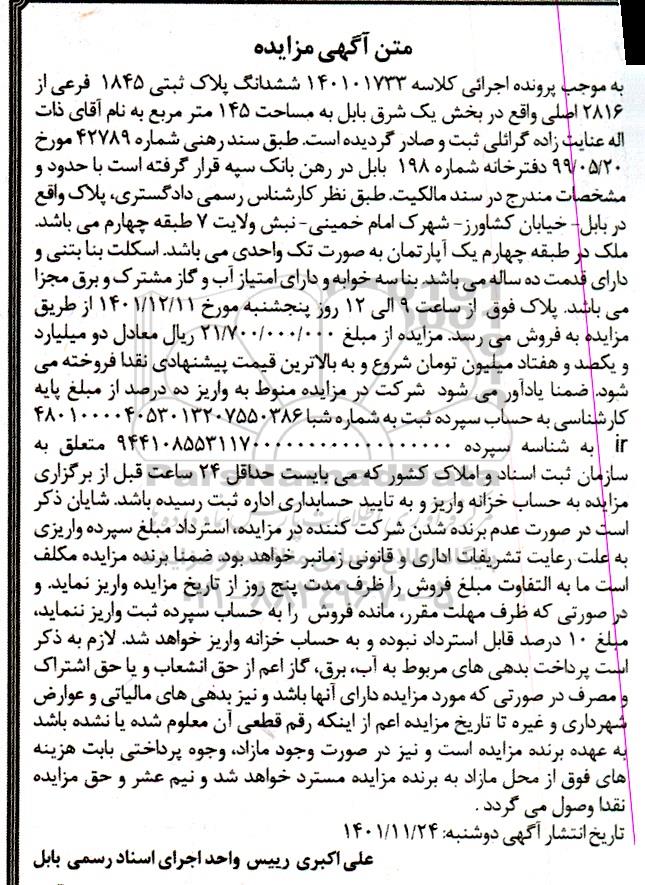 متن آگهی مزایده
به موجب پرونده اجرائی کلاسه ۱۴۰۱۰۱۷۳۳ ششدانگ پلاک ثبتی ۱۸۴۵ فرعی از
۲۸۱۶ اصلی واقع در بخش یک شرق بابل به مساحت ۱۴۵ متر مربع به نام آقای ذات
اله عنایت زاده گرائلی ثبت و صادر گردیده است. طبق سند رهنی شماره ۴۲۷۸۹ مورخ
۹۹/۰۵/۲۰ دفترخانه شماره ۱۹۸ بابل در رهن بانک سپه قرار گرفته است با حدود و
مشخصات مندرج در سند مالکیت. طبق نظر کارشناس رسمی دادگستری، پلاک واقع
در بابل- خیابان کشاورز- شهرک امام خمینی- نبش ولایت ۷ طبقه چهارم می باشد.
ملک در طبقه چهارم یک آپارتمان به صورت تک واحدی می باشد. اسکلت بنا بتنی و
دارای قدمت ده ساله می باشد. بنا سه خوابه و دارای امتیاز آب و گاز مشترک و برق مجزا
می باشد. پلاک فوق از ساعت ۹ الی ۱۲ روز پنجشنبه مورخ ۱۴۰۱/۱۲/۱۱ از طریق
مزایده به فروش می رسد. مزایده از مبلغ ۲۱/۷۰۰/۰۰۰/۰۰۰ ریال معادل دو میلیارد
و یکصد و هفتاد میلیون تومان شروع و به بالاترین قیمت پیشنهادی نقدا فروخته می
شود. ضمنا یادآور می شود شرکت در مزایده منوط به واریز ده درصد از مبلغ پایه
کارشناسی به حساب سپرده ثبت به شماره شبا ۴۸۰۱۰۰۰۰۴۰۵۳۰۱۳۲۰۷۵۵۰۳۸۶
ir به شناسه سپرده متعلق به
سازمان ثبت اسناد و املاک کشور که می بایست حداقل ۲۴ ساعت قبل از برگزاری
مزایده به حساب خزانه واریز و به تایید حسابداری اداره ثبت رسیده باشد. شایان ذکر
است در صورت عدم برنده شدن شرکت کننده در مزایده، استرداد مبلغ سپرده واریزی
به علت رعایت تشریفات اداری و قانونی زمانبر خواهد بود. ضمنا برنده مزایده مکلف
است ما به التفاوت مبلغ فروش را ظرف مدت پنج روز از تاریخ مزایده واریز نماید. و
در صورتی که ظرف مهلت مقرر، مانده فروش را به حساب سپرده ثبت واریز ننماید،
مبلغ ۱۰ درصد قابل استرداد نبوده و به حساب خزانه واریز خواهد شد. لازم به ذکر
است پرداخت بدهی های مربوط به آب، برق، گاز اعم از حق انشعاب و یا حق اشتراک
و مصرف در صورتی که مورد مزایده دارای آنها باشد و نیز بدهی های مالیاتی و عوارض
شهرداری و غیره تا تاریخ مزایده اعم از اینکه رقم قطعی آن معلوم شده یا نشده باشد
به عهده برنده مزایده است و نیز در صورت وجود مازاد، وجوه پرداختی بابت هزینه
های فوق از محل مازاد به برنده مزایده مسترد خواهد شد و نیم عشر و حق مزایده
نقدا وصول می گردد .
تاریخ انتشار آگهی دوشنبه: ۱۴۰۱/۱۱/۲۴
علی اکبری رییس واحد اجرای اسناد رسمی بابل